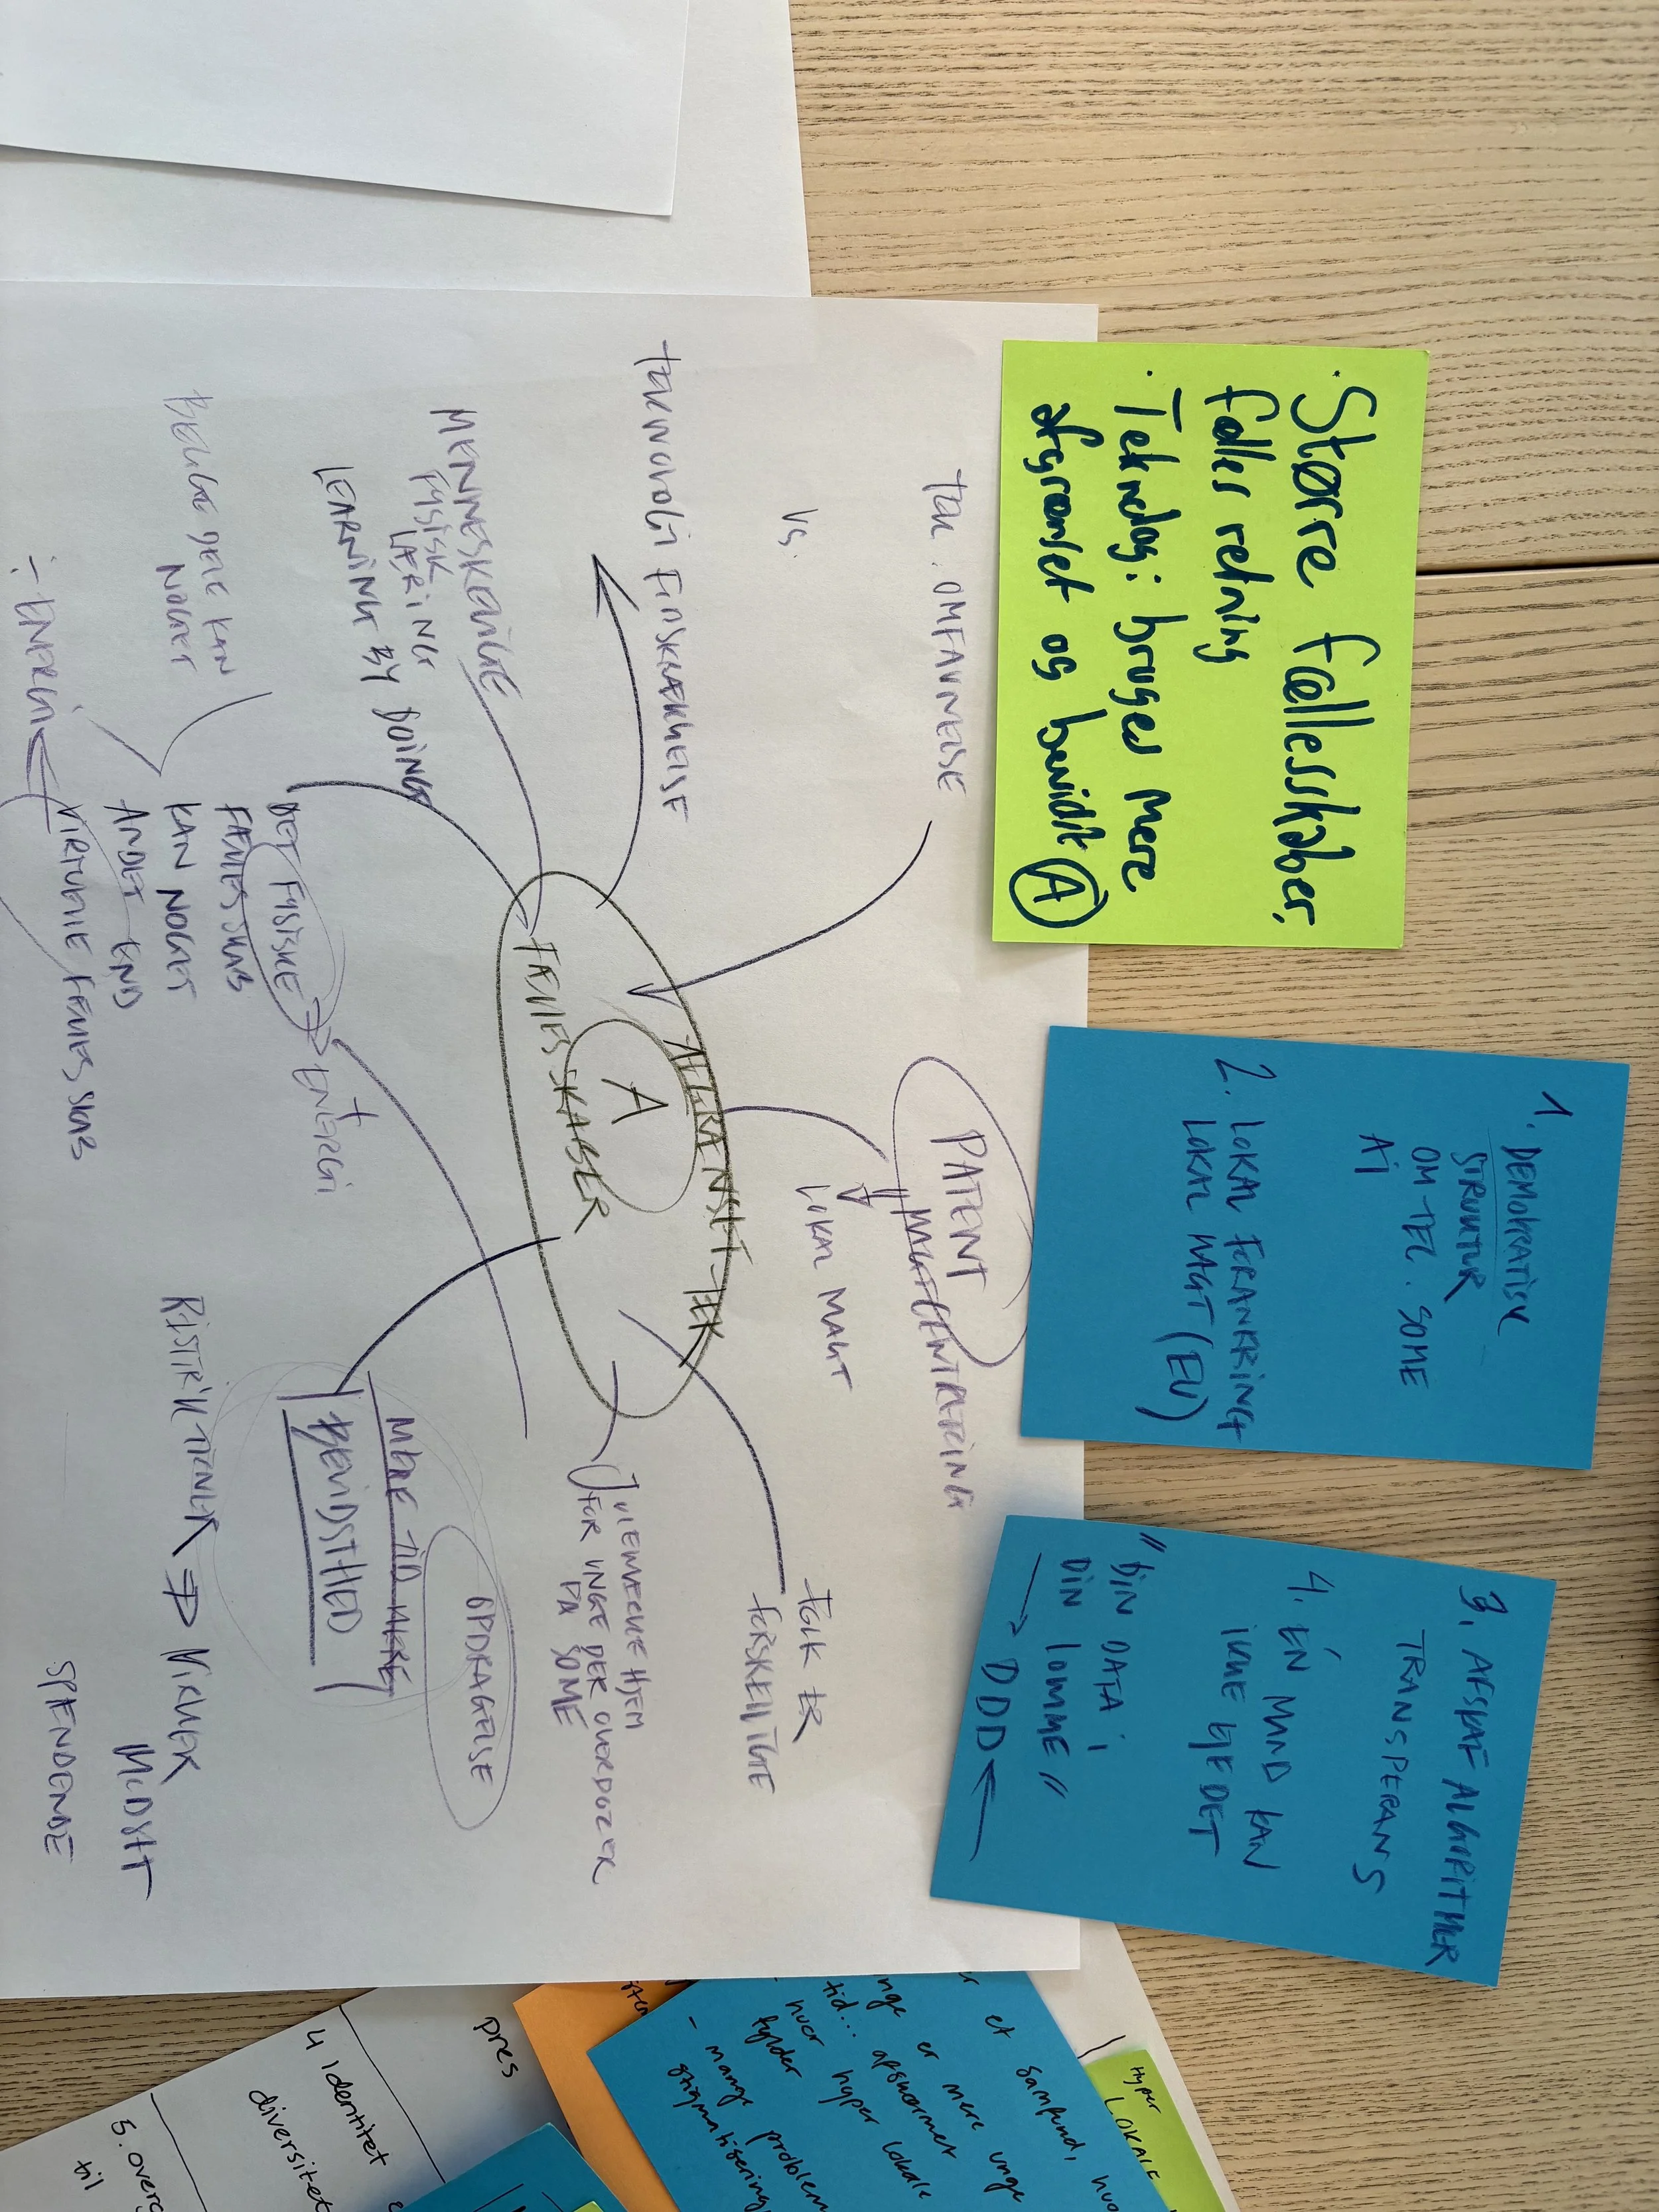 · Større fællesskaber,
fælles retning
· Teknologi bruges mere
afgrænset og bevidst
A
1. DEMOKRATISK
STRUKTUR
OM TEC. SOME
AI
2. LOKAL FORANKRING
LOKAL MAGT (EU)
3. AFSKAF ALGORITMER
TRANSPERANS
4. ÉN MAND KAN
IKKE EJE DET
"DIN DATA I
DIN LOMME"
→ DDD ←
TEK. OMFAVNELSE
VS.
TEKNOLOGI FORSKRÆKKELSE
PATENT
MAGTCENTRERING
LOKAL MAGT
AFGRÆNSET TEK
A
FÆLLESSKABER
MENNESKELIGE
FYSISK
LÆRING
LEARNING BY DOING
BEGGE DELE KAN
NOGET
DET FYSISKE
FÆLLESSKAB
KAN NOGET
ANDET END
VIRTUELLE FÆLLESSKAB
+
ENERGI
÷ ENERGI
FOLK ER
FORSKELLIGE
HJEM
FOR UNGE DER OVERDOZER
PÅ SOME
OPDRAGELSE
MERE TID MERE
BEVIDSTHED
RISTRIKTIONER ⇒ VIRKER
MODSAT
SPENDENDE
Hyper
LOKALE
et samfund,
er mere unge
tid... afskærmet
- hvor hyper lokale
fylder
- mange problem
stigmatisering
pres
4 Identitet
diversitet
5. overg
til